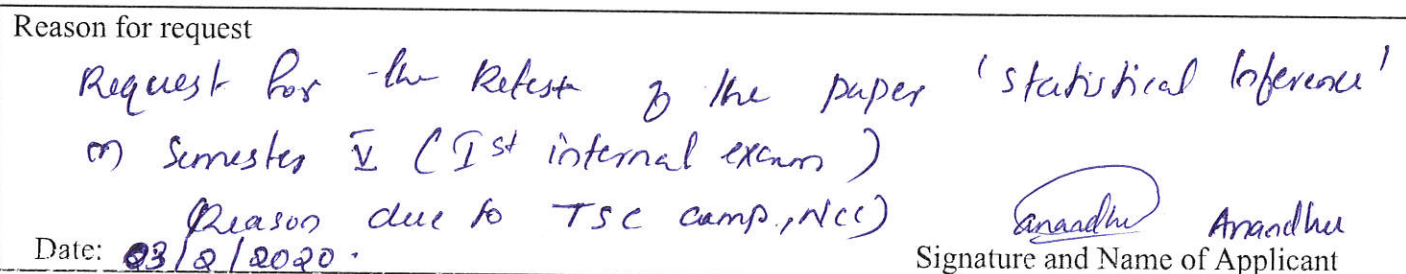 Reason for request
Request for the Retest of the paper 'Statistical Inference'
on Semester V (Ist internal exam)
(Reason due to TSC camp, NCC)
anandhu Anandhu
Date: 03/2/2020.
Signature and Name of Applicant